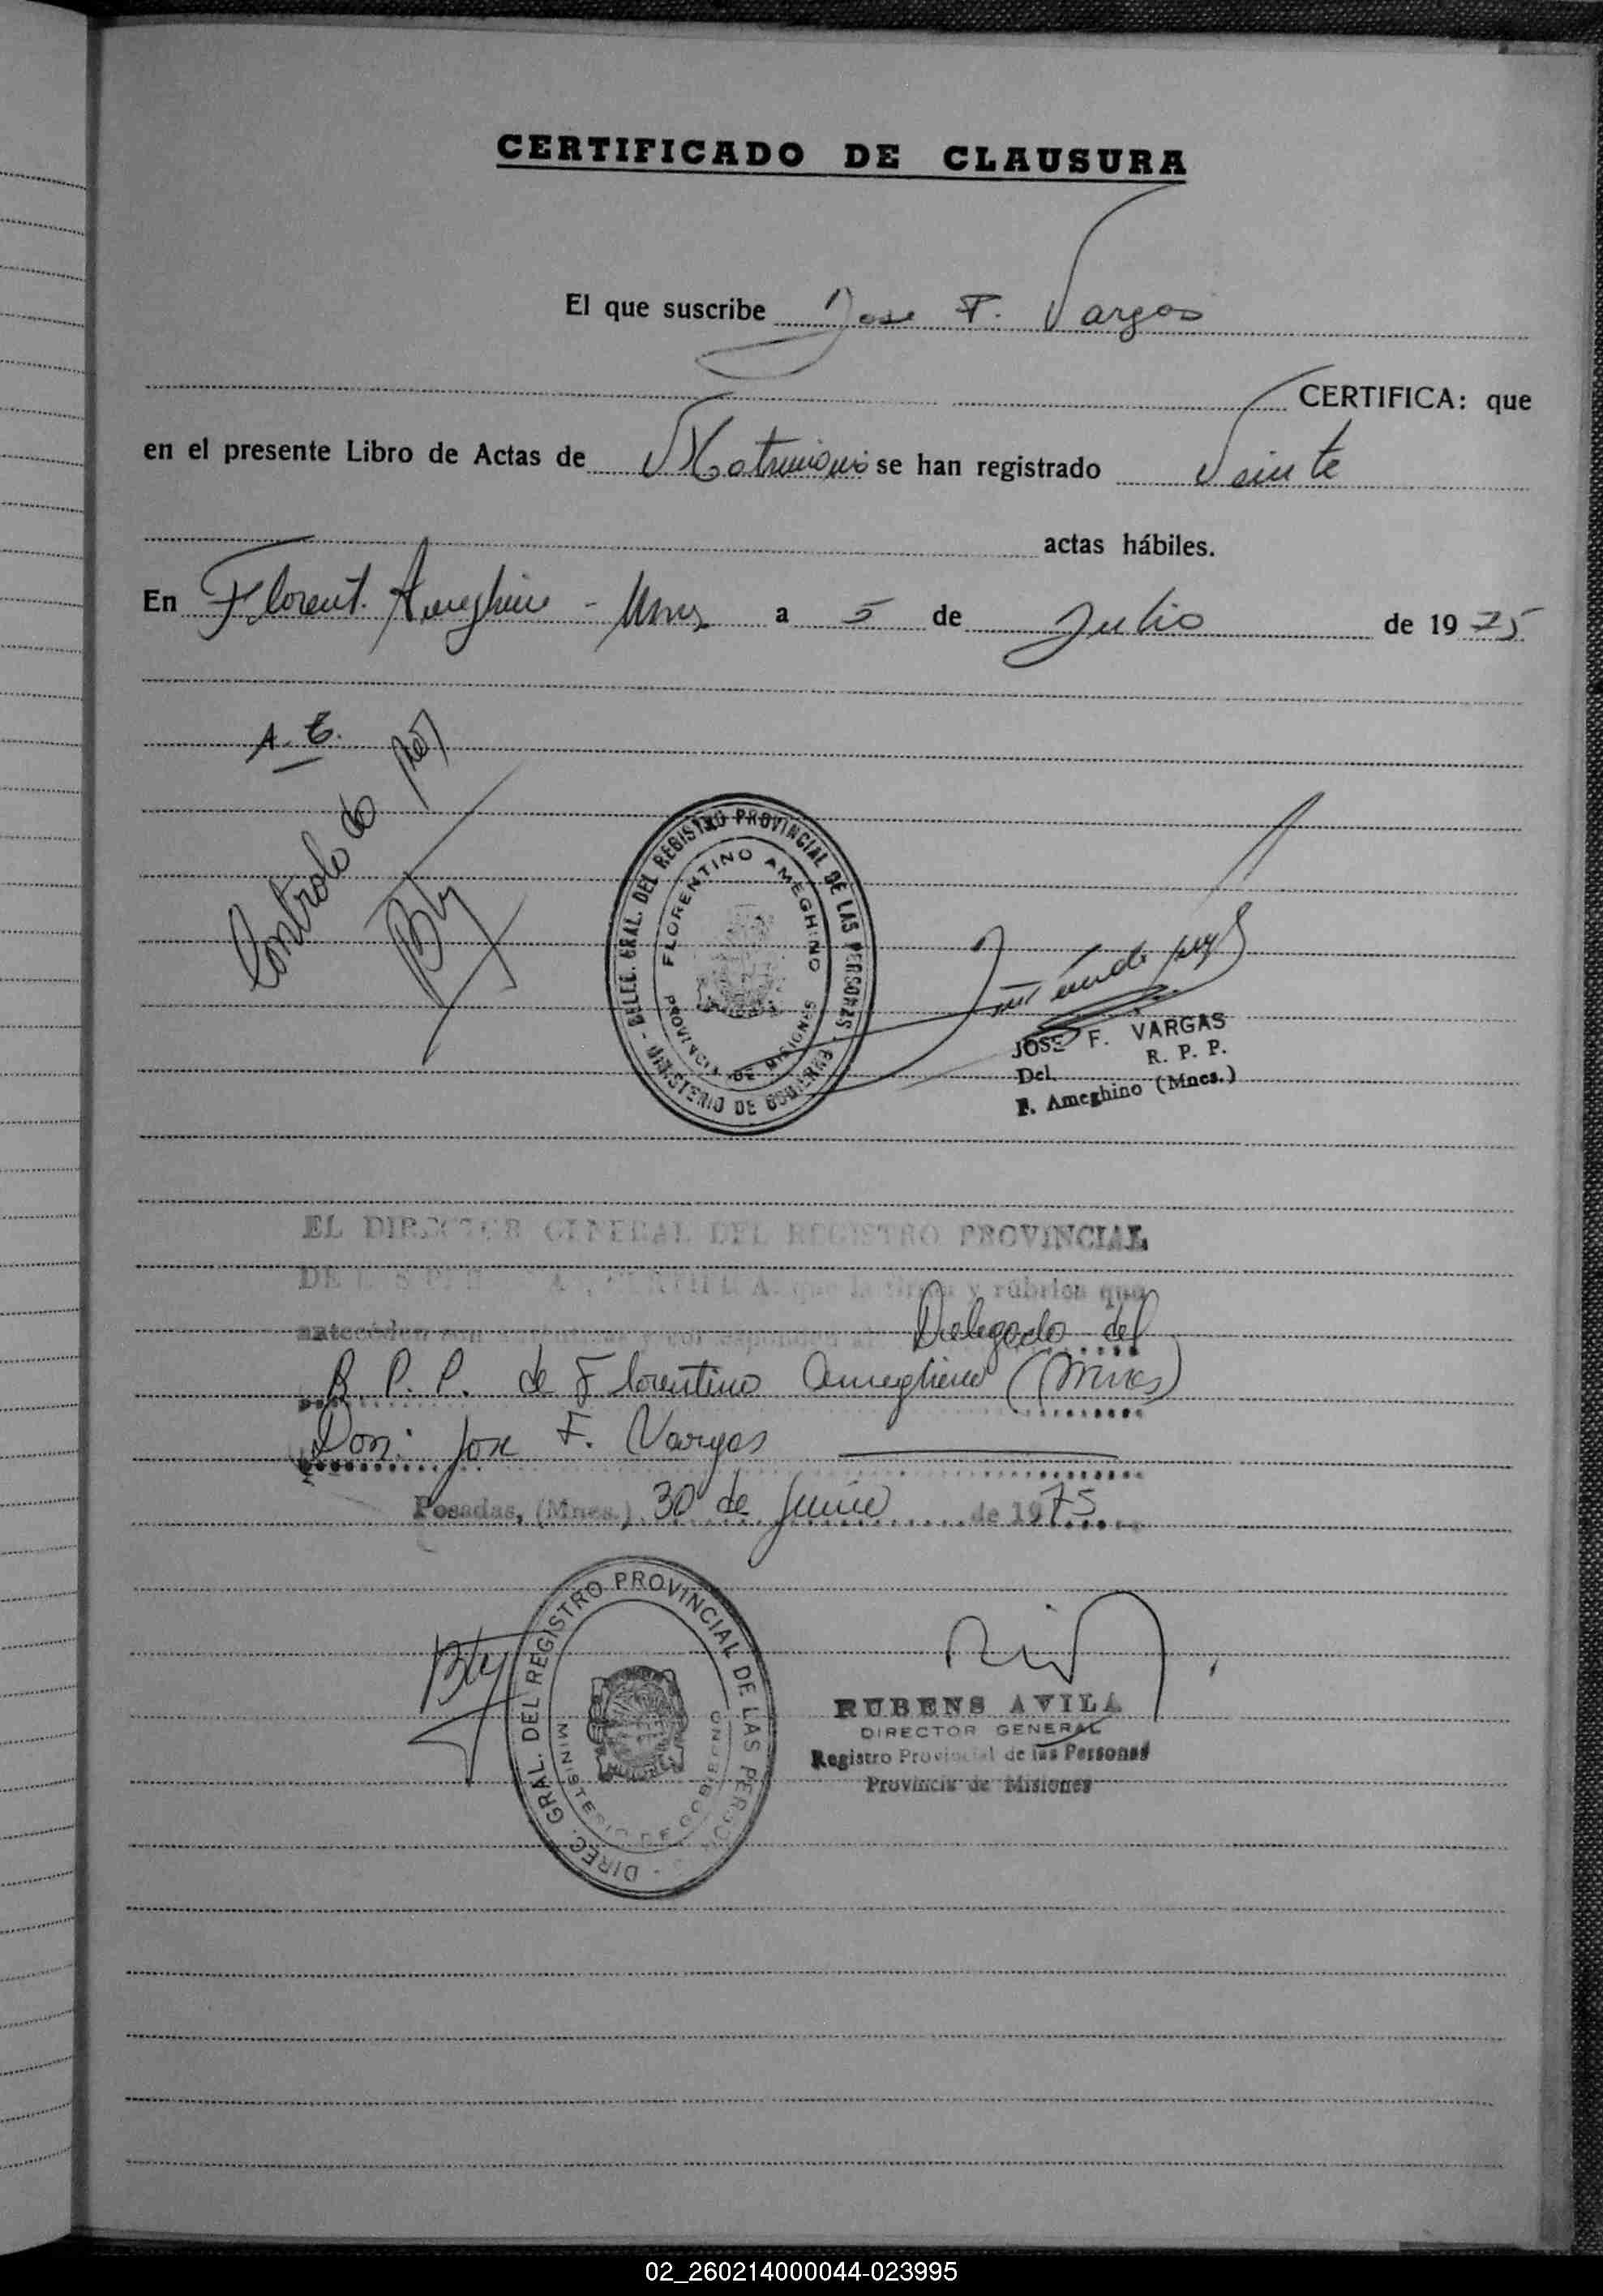 CERTIFICADO DE CLAUSURA
El que suscribe Jose F. Vargas
CERTIFICA: que
en el presente Libro de Actas de Matrimonio se han registrado Veinte
actas hábiles.
En Florent. Ameghino - Mnes a 5 de Julio de 1975
Controlado por
DELEG. GRAL. DEL REGISTRO PROVINCIAL DE LAS PERSONAS - MINISTERIO DE GOBIERNO
FLORENTINO AMEGHINO
PROVINCIA DE MISIONES
JOSE F. VARGAS
Del. R. P. P.
F. Ameghino (Mnes.)
EL DIRECTOR GENERAL DEL REGISTRO PROVINCIAL
DE LAS PERSONAS, CERTIFICA: que la firma y rúbrica que
anteceden son Delegado del
R. P. P. de Florentino Ameghino (Mnes)
Don: Jose F. Vargas
Posadas, (Mnes.) 30 de Junio de 1975
DIREC. GRAL. DEL REGISTRO PROVINCIAL DE LAS PERSONAS
MINISTERIO DE GOBIERNO
RUBENS AVILA
DIRECTOR GENERAL
Registro Provincial de las Personas
Provincia de Misiones
02_260214000044-023995